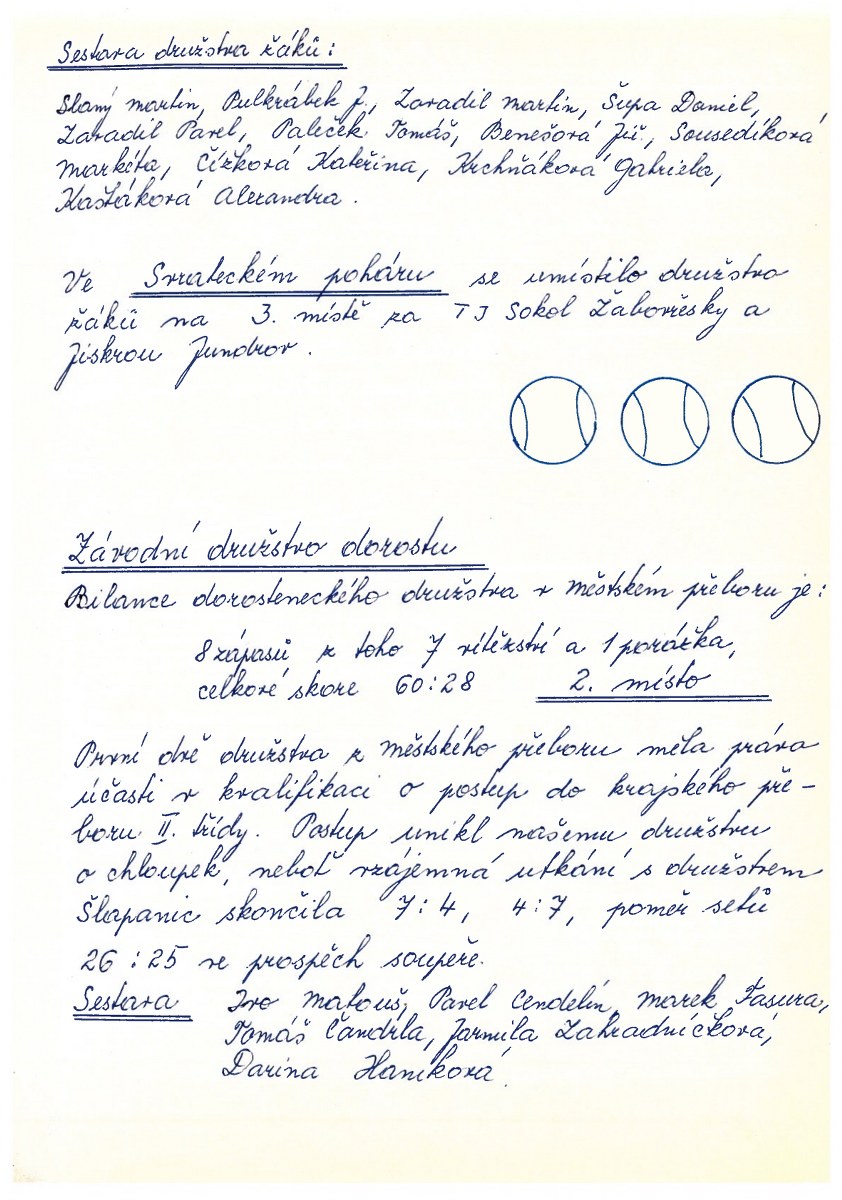 Sestava družstva žáků:
Slaný Martin, Pulkrábek J., Zavadil Martin, Šupa Daniel,
Zavadil Pavel, Paleček Tomáš, Benešová Jiř., Sousedíková
Markéta, Čížková Kateřina, Krchňáková Gabriela,
Kaštáková Alexandra.
Ve Svrateckém poháru se umístilo družstvo
žáků na 3. místě za TJ Sokol Žabovřesky a
Jiskrou Jundrov.
Závodní družstvo dorostu
Bilance dorosteneckého družstva v městském přeboru je:
8 zápasů z toho 7 vítězství a 1 porážka,
celkové skore 60:28 2. místo
První dvě družstva z městského přeboru měla práva
účasti v kvalifikaci o postup do krajského pře-
boru II. třídy. Postup unikl našemu družstvu
o chloupek, neboť vzájemná utkání s družstvem
Šlapanic skončila 7:4, 4:7, poměr setů
26:25 ve prospěch soupeře.
Sestava Ivo Matouš, Pavel Cendelín, Marek Fasura,
Tomáš Čandrla, Jarmila Zahradníčková,
Darina Haníková.